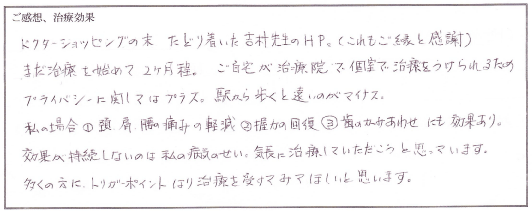 ご感想、治療効果
ドクターショッピングの末 たどり着いた吉村先生のHP。(これもご縁と感謝)
まだ治療を始めて2ヶ月程。ご自宅が治療院で個室で治療をうけられるため
プライバシーに関してはプラス。駅から歩くと遠いのがマイナス。
私の場合①頭、肩、腰の痛みの軽減②握力の回復③歯のかみあわせにも効果あり。
効果が持続しないのは私の病気のせい。気長に治療していただこうと思っています。
多くの方に、トリガーポイントはり治療を受けてみてほしいと思います。